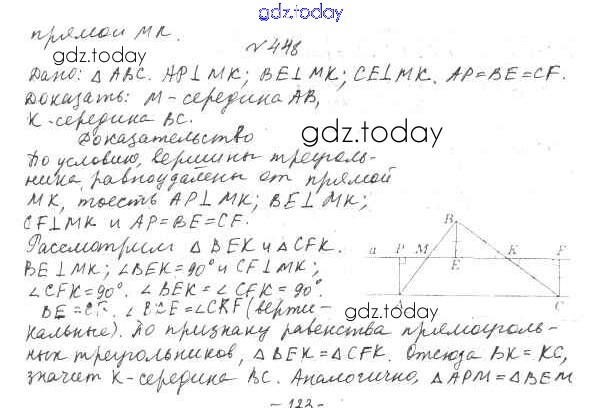 gdz.today
прямой МК.
№448
gdz.today
Дано: △ ABC. AP⊥MK; BE⊥MK; CE⊥MK. AP=BE=CF.
Доказать: M-середина AB,
K-середина BC.
Доказательство
gdz.today
По условию, вершины треуголь-
ника равноудалены от прямой
MK, тоесть AP⊥MK; BE⊥MK;
CF⊥MK и AP=BE=CF.
Рассмотрим △BEK и △CFK.
BE⊥MK; ∠BEK=90° и CF⊥MK;
∠CFK=90°. ∠BEK=∠CFK=90°.
BE=CF. =∠CKF (верти-
кальные). По признаку равенства прямоуголь-
ных треугольников, △BEK=△CFK. Отсюда BK=KC,
значит K-середина BC. Аналогично, △APM=△BEM
B
a P M E K F
A C
gdz.today
gdz.today
-123-